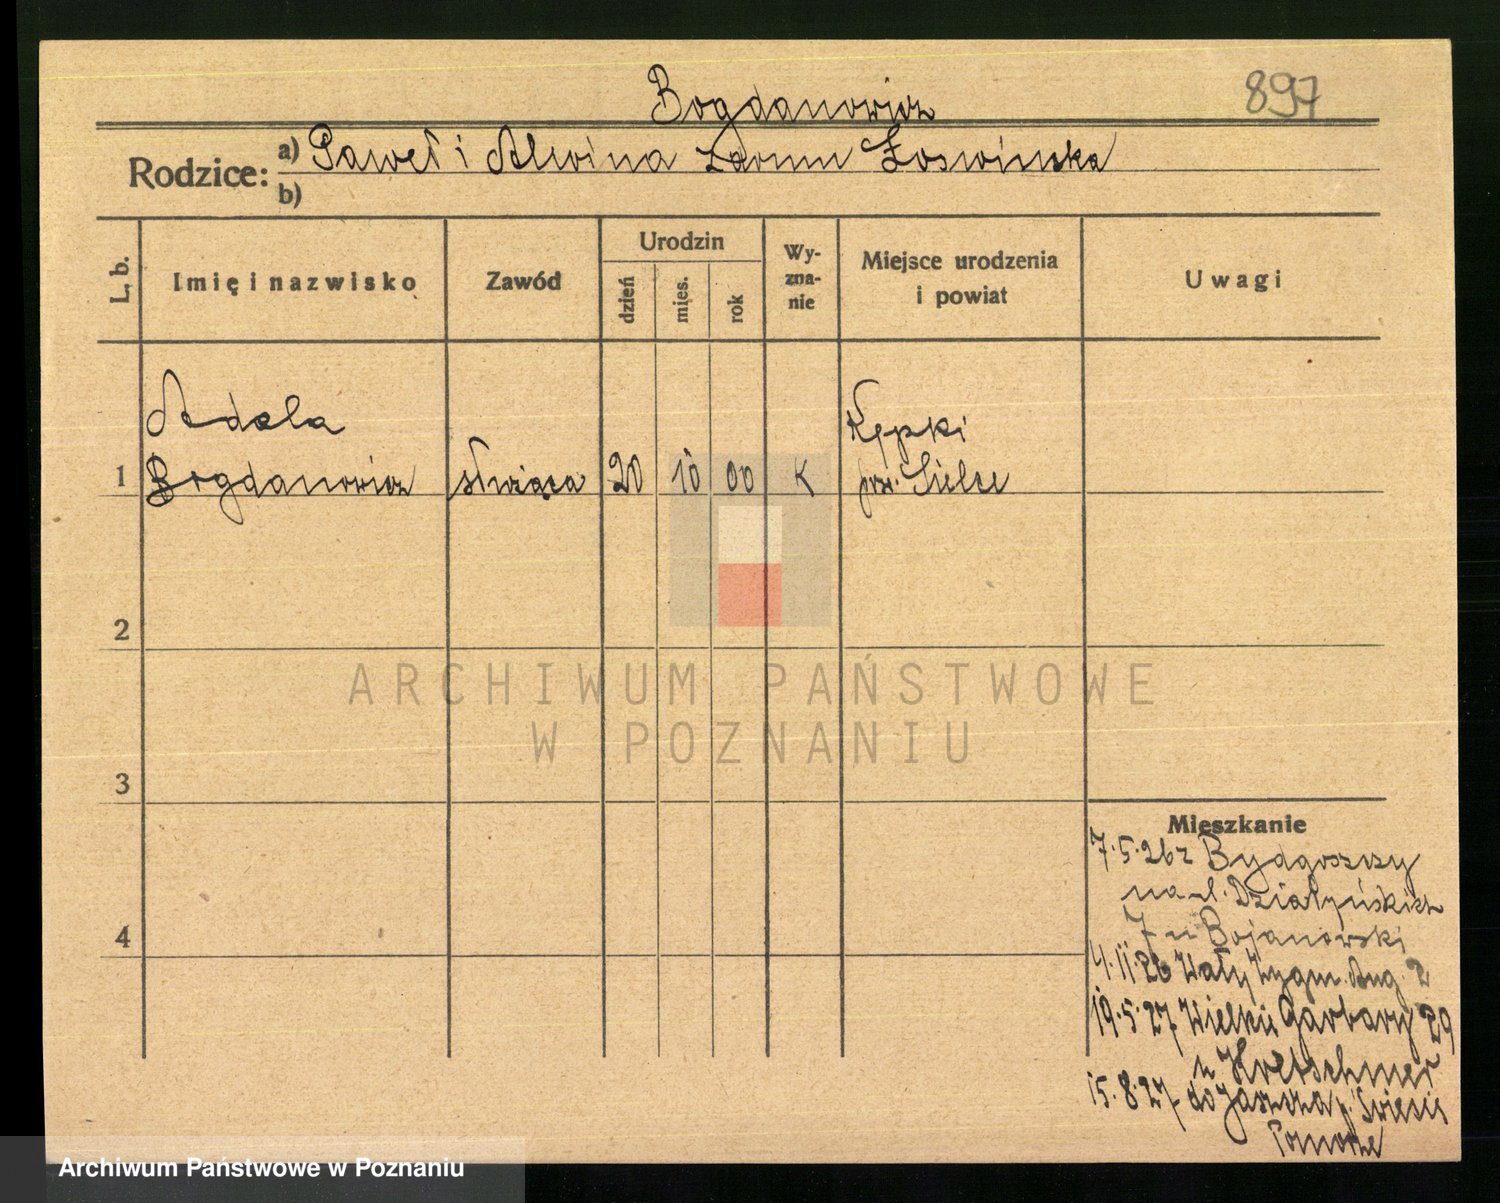 Bogdanowicz
897
Rodzice: a) Paweł i Alwina z domu Łoswińska
b)
L. b.
Imię i nazwisko
Zawód
Urodzin
dzień
mies.
rok
Wy-
zna-
nie
Miejsce urodzenia
i powiat
Uwagi
Adela
Bogdanowicz
1
służąca
20
10
00
K
Kępki
pow. Sielce
2
3
4
ARCHIWUM PAŃSTWOWE
W POZNANIU
Mieszkanie
7.5.26 z Bydgoszczy
na ul. Działyńskich
7 u Bojanowski
4.11.26 Wały Zygm. Aug. 2
19.5.27 Wielkie Garbary 29
u Kretschmer
15.8.27 do Jaszcza p. Świecie
Pomorze
Archiwum Państwowe w Poznaniu